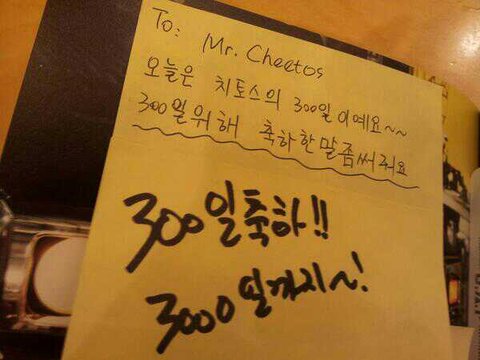 To: Mr. Cheetos
오늘은 치토스의 300일이예요~~
300일위해 축하한말좀써줘요
300일축하!!
3000일까지~!